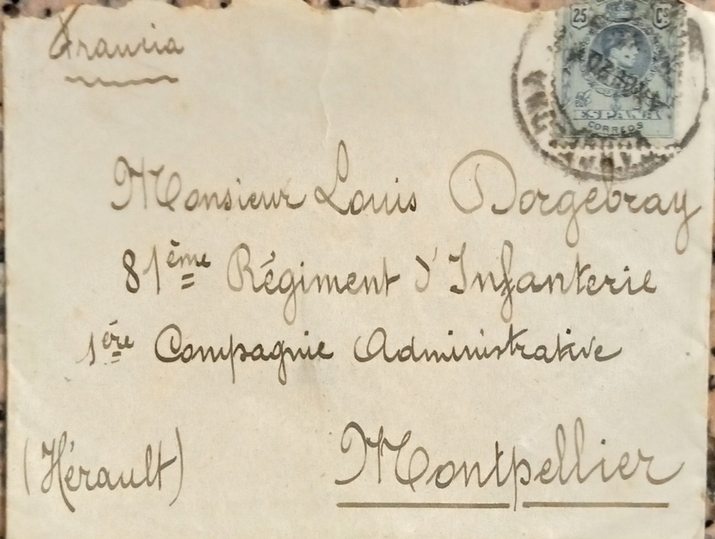 Francia
25 Cs
ESPAÑA
CORREOS
Monsieur Louis Dorgebray
81ème Régiment d'Infanterie
1ère Compagnie Administrative
(Hérault) Montpellier